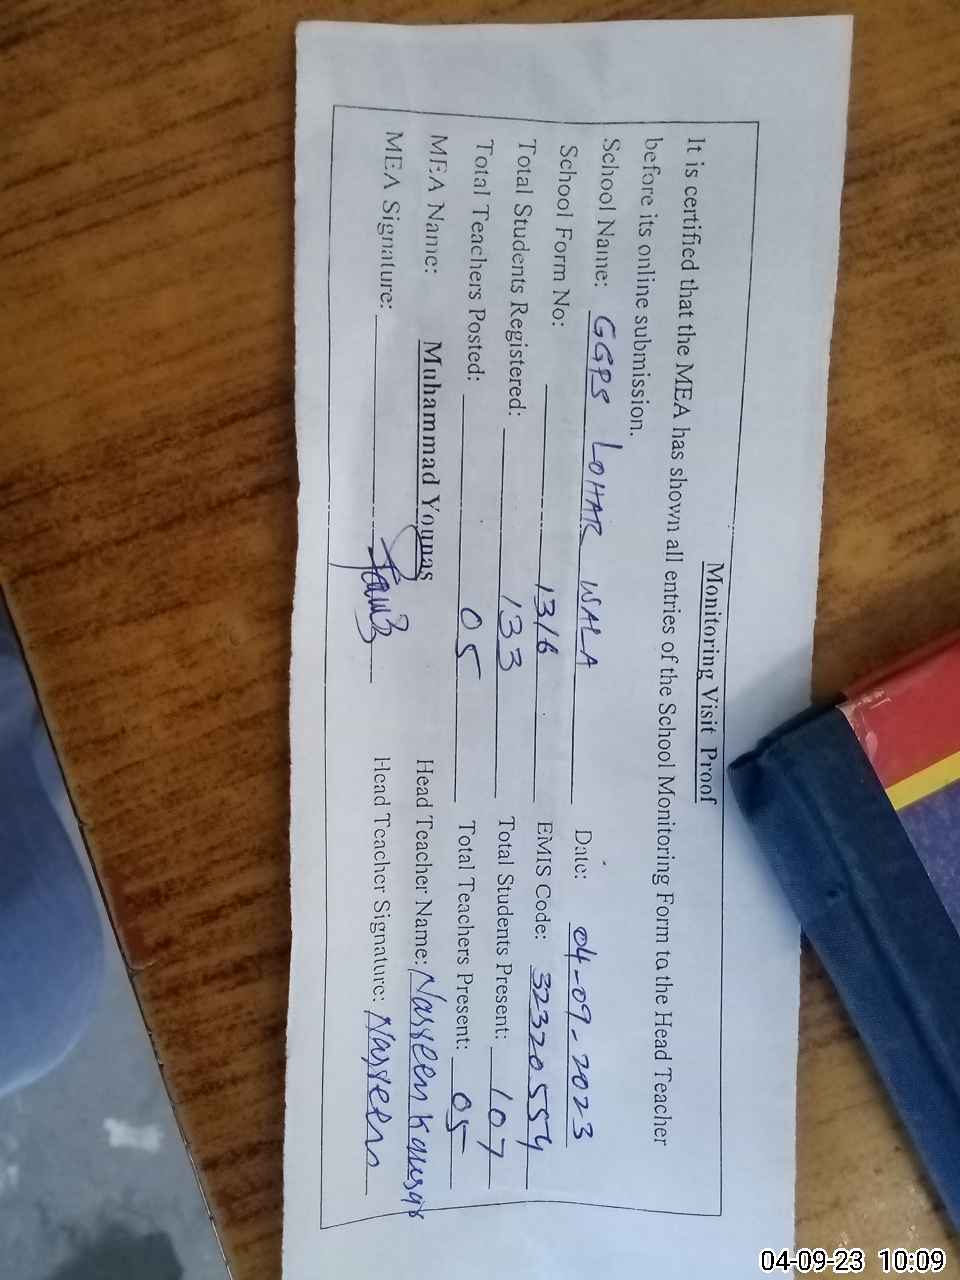 Monitoring Visit Proof
It is certified that the MEA has shown all entries of the School Monitoring Form to the Head Teacher
before its online submission.
School Name: GGPS LOHAR WALA Date: 04-09-2023
School Form No: 1316 EMIS Code: 32320554
Total Students Registered: 133 Total Students Present: 107
Total Teachers Posted: 05 Total Teachers Present: 05
MEA Name: Muhammad Younas Head Teacher Name: Nasreen Kausar
MEA Signature: Head Teacher Signature: Nasreen
04-09-23 10:09